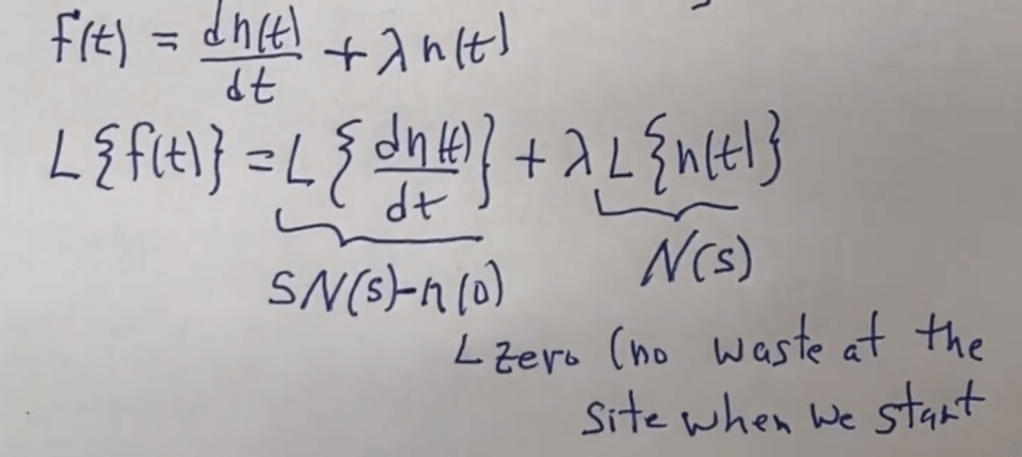 f(t) = dn(t)/dt + λn(t)
L{f(t)} = L{dn(t)/dt} + λL{n(t)}
SN(s)-n(0) N(s)
∠ zero (no waste at the
site when we start